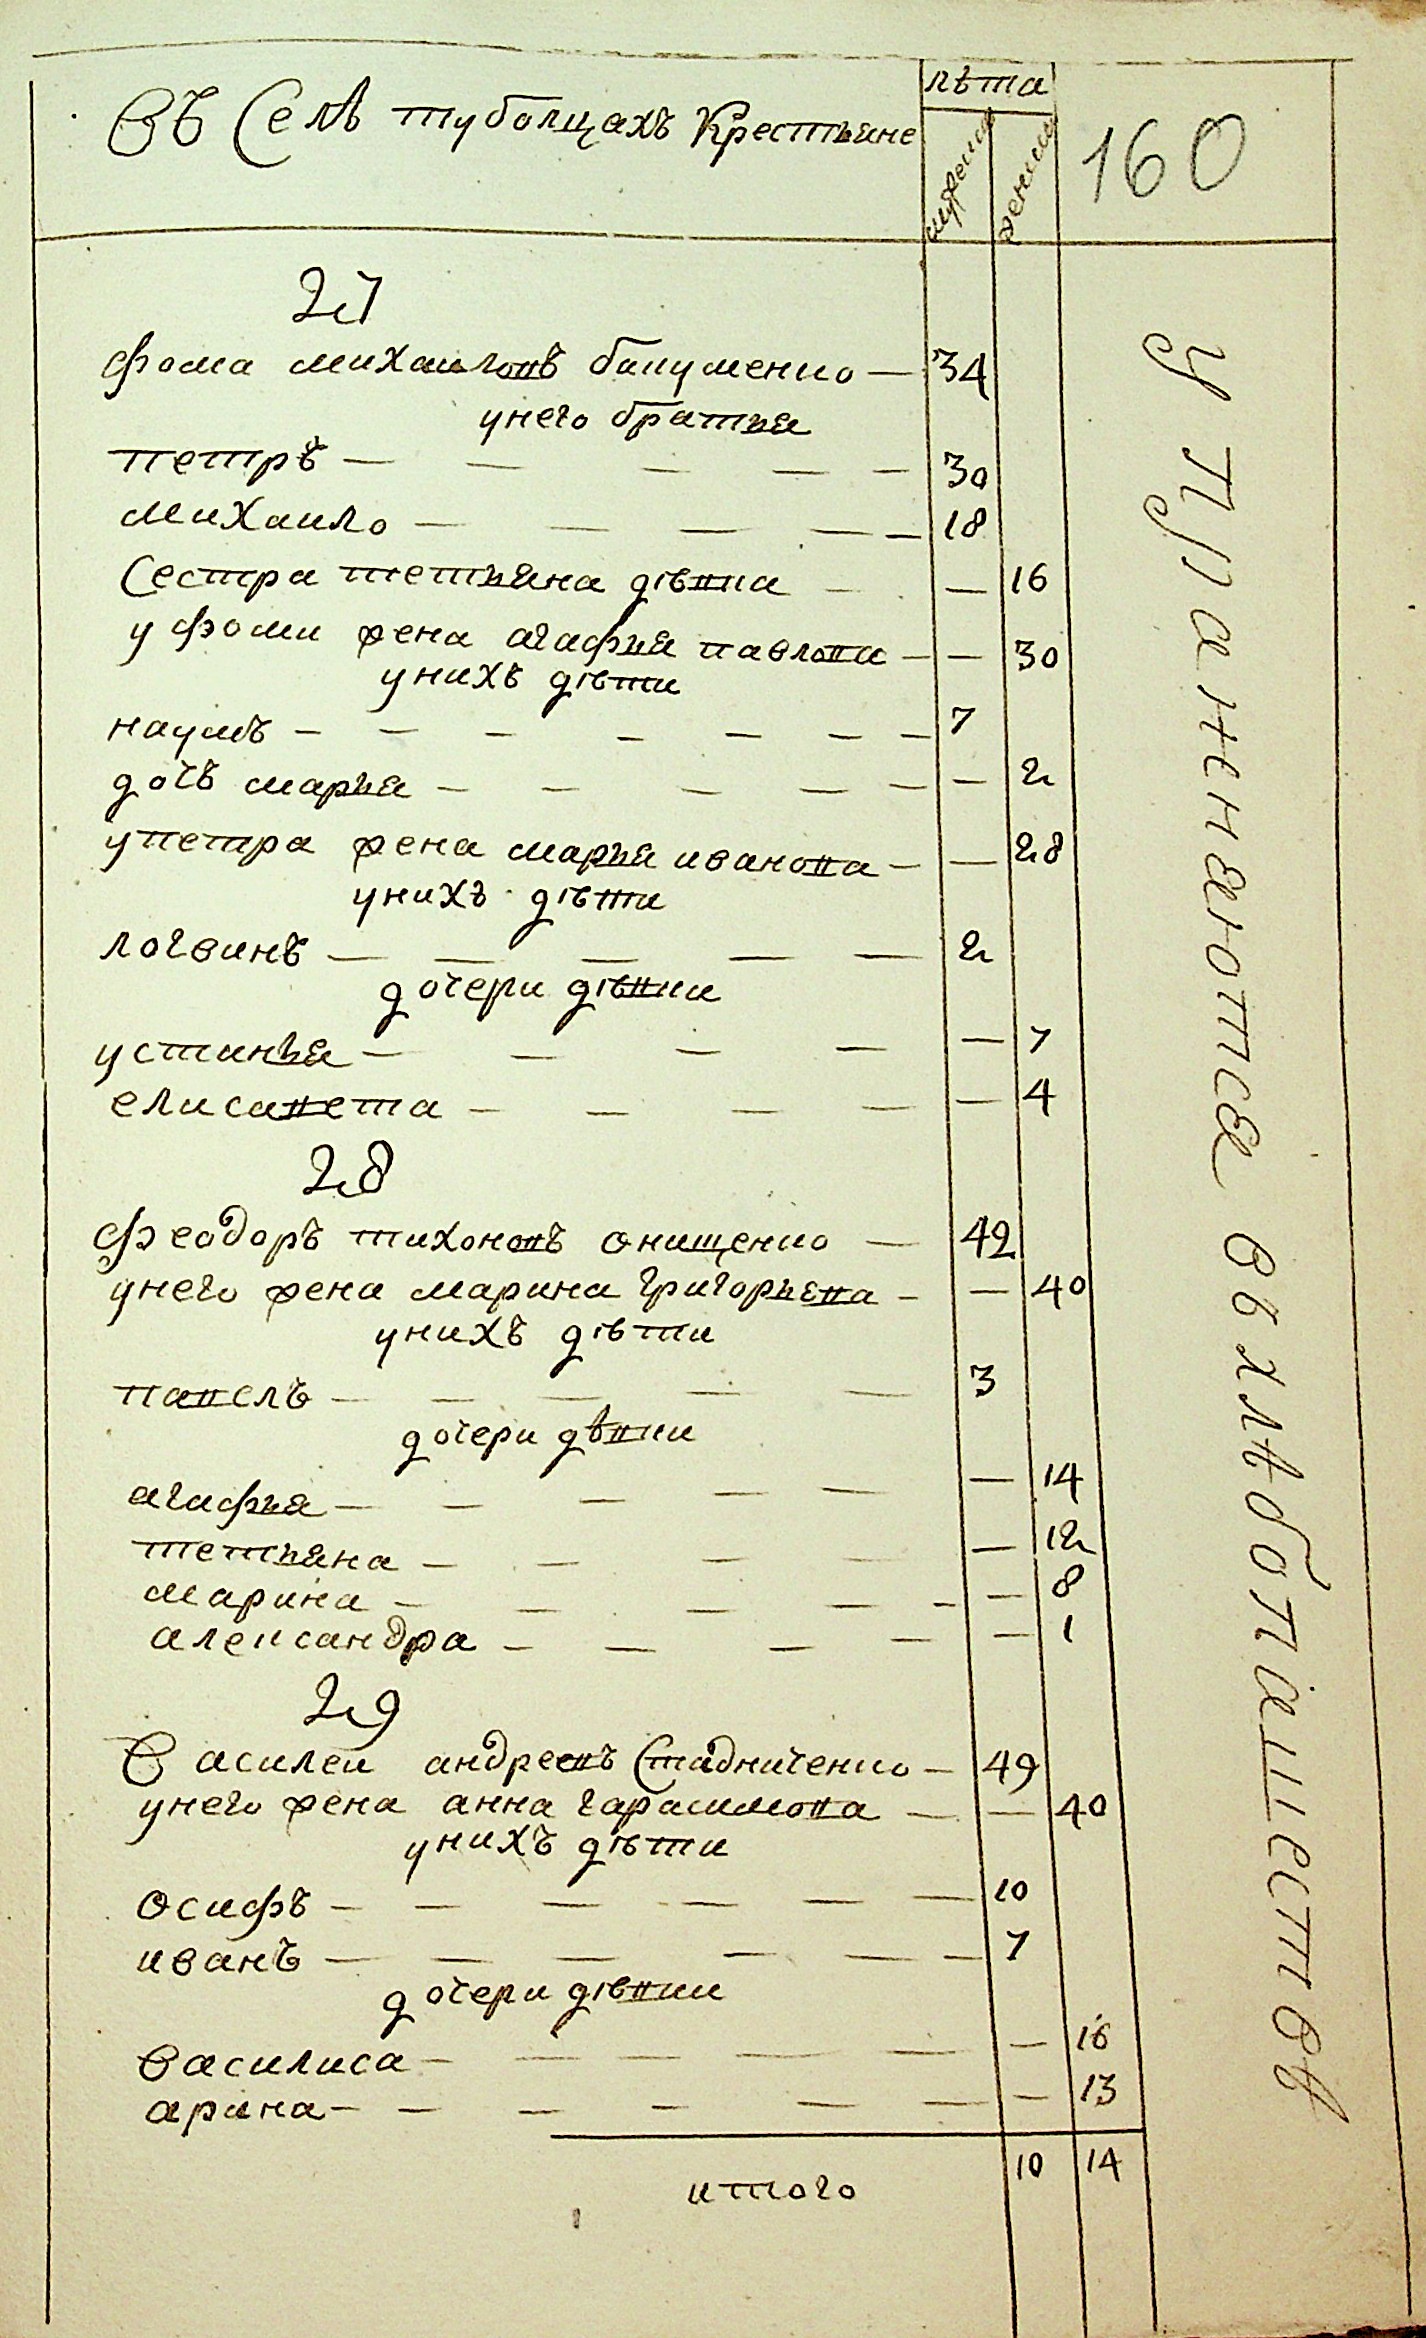 Въ Селѣ туболцахъ Крестьяне
лѣта
мужеска
женска
160
27
фома михаиловъ бакуменко — 34
унего братья
петръ — 30
михаило — 18
Сестра тетьяна дѣвка — 16
у фоми жена агафья павлова — 30
унихъ дѣти
наумъ — 7
дочъ марья — 2
упетра жена марья иванова — 28
унихъ дѣти
логвинъ — 2
дочери дѣвки
устинья — 7
елисавета — 4
28
феодоръ тихоновъ онищенко — 42
унего жена марина григорьева — 40
унихъ дѣти
павелъ — 3
дочери дѣвки
агафья — 14
тетьяна — 12
марина — 8
александра — 1
29
Василеи андреевъ Стадниченко — 49
унего жена анна гарасимова — 40
унихъ дѣти
осифъ — 10
иванъ — 7
дочери дѣвки
василиса — 16
арина — 13
итого 10 14
упражнаютсе вхлѣбопашествѣ